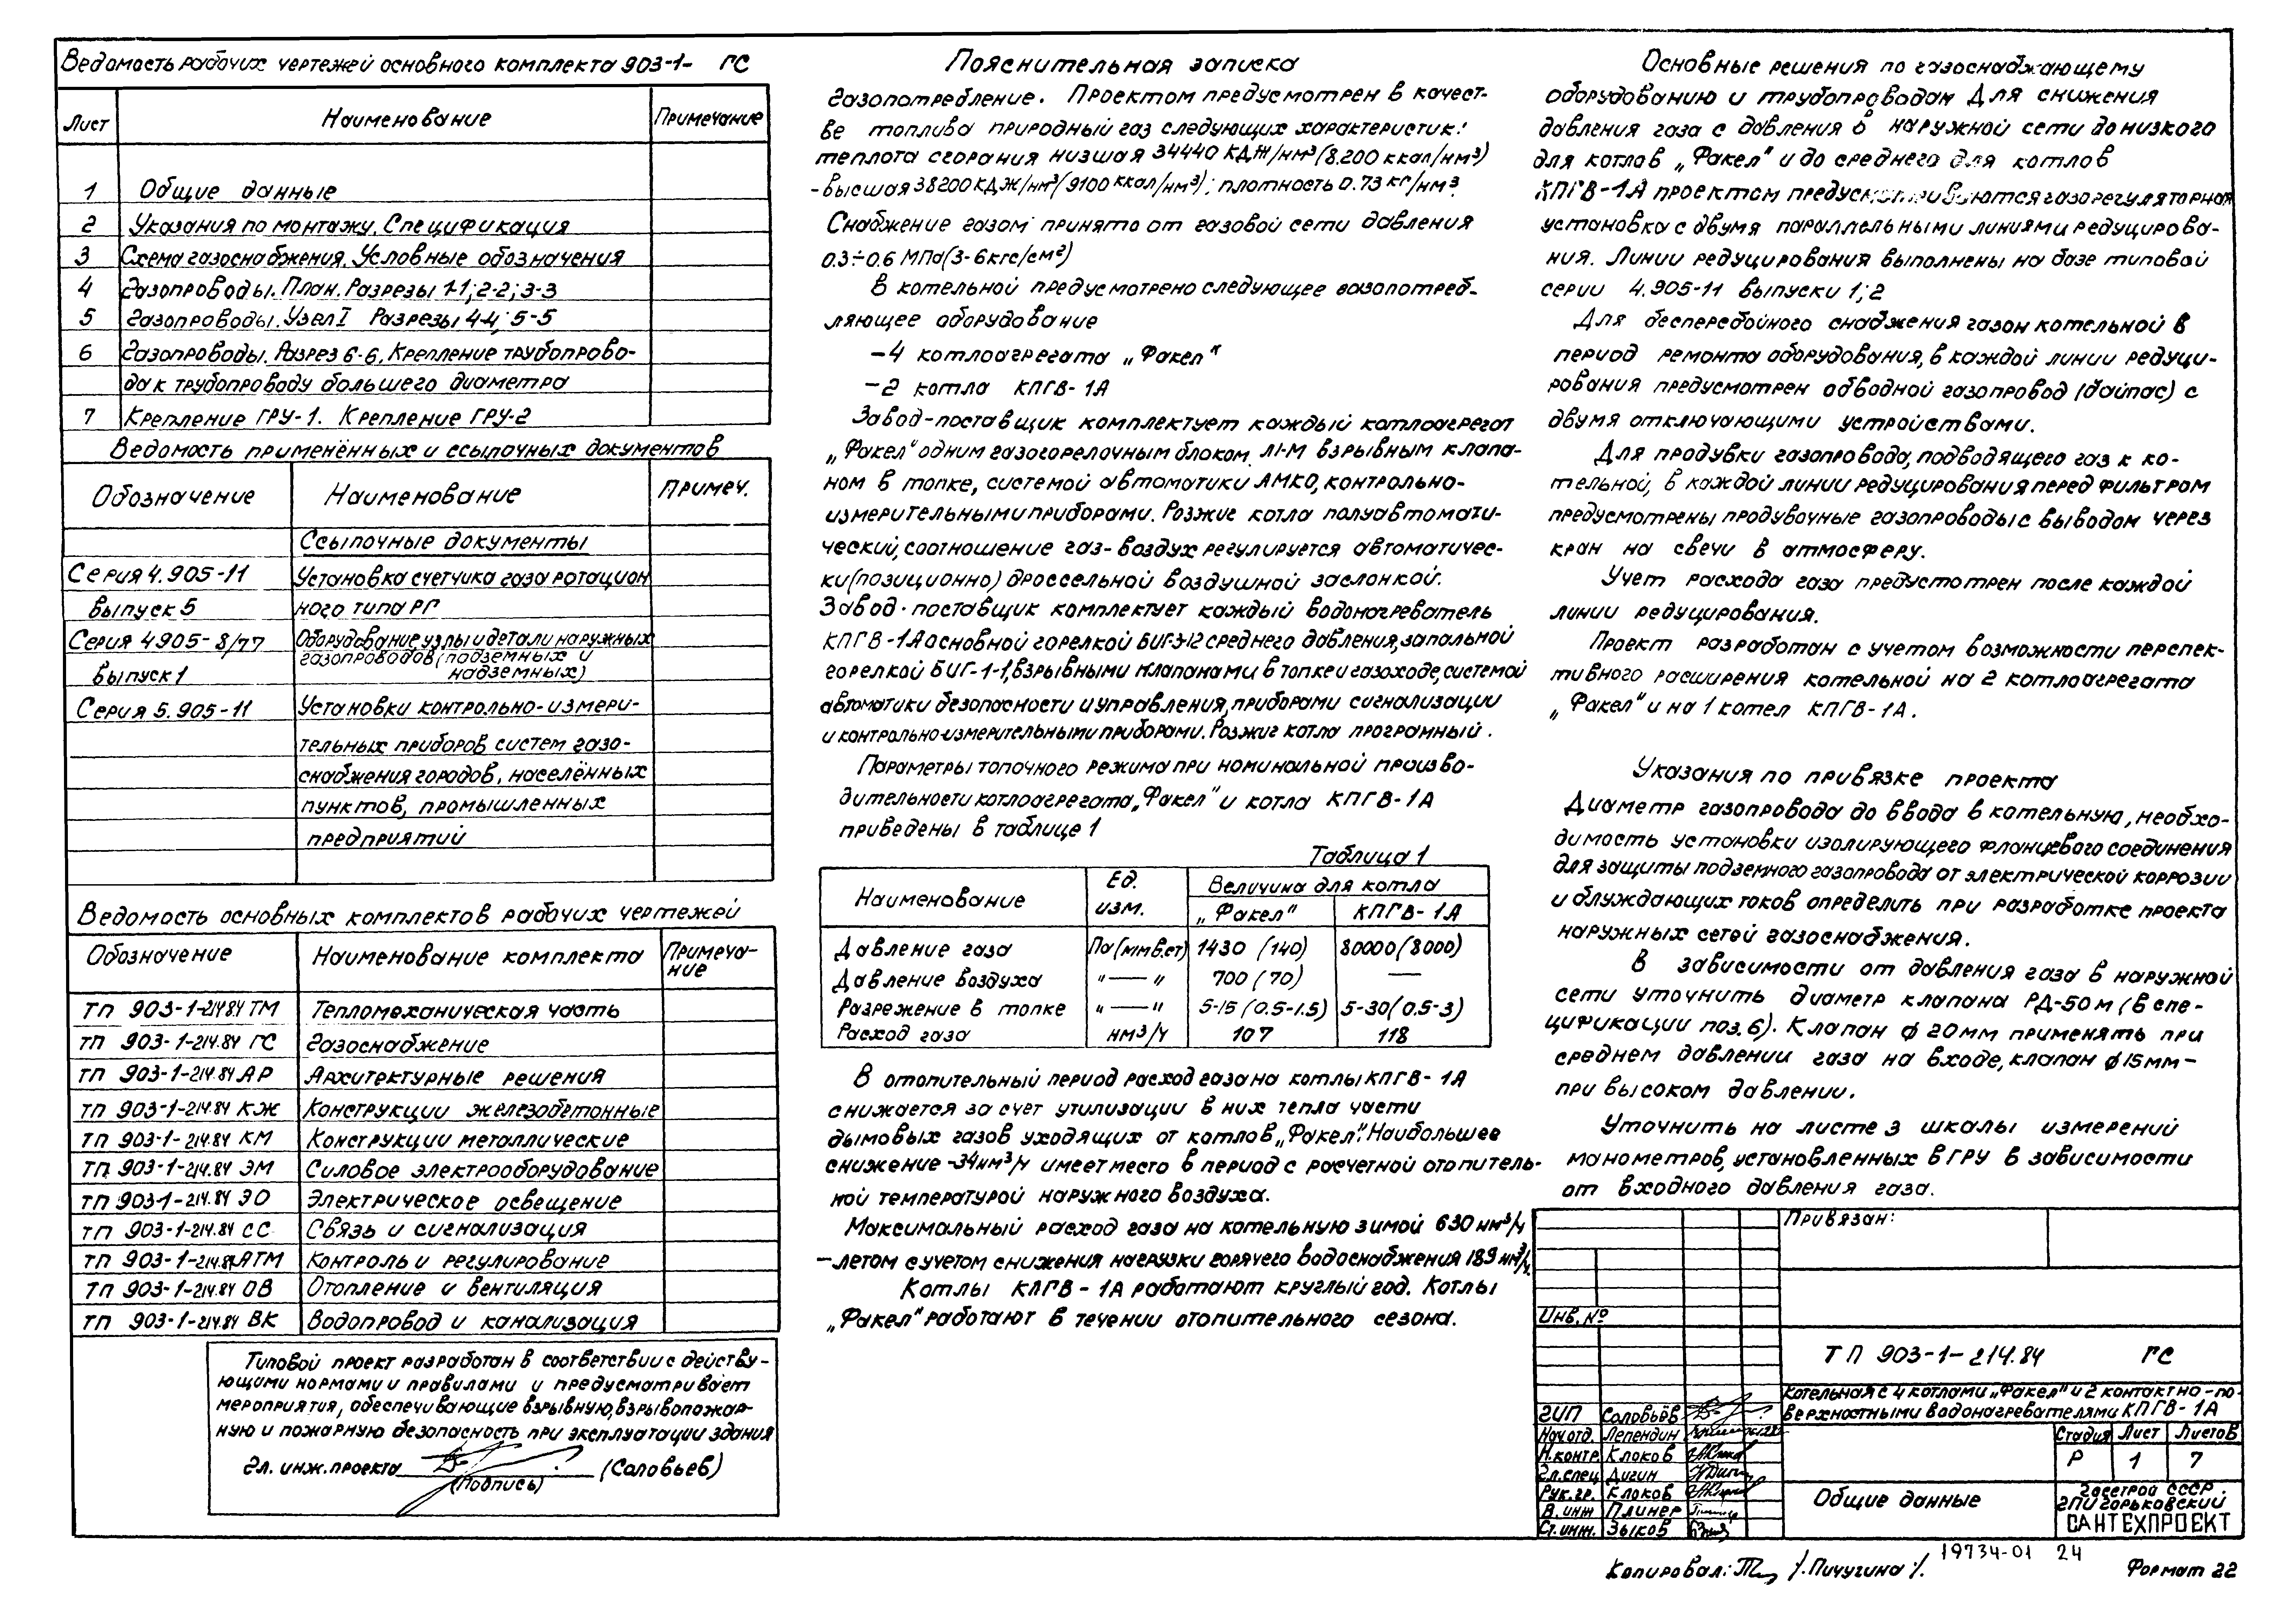 Ведомость рабочих чертежей основного комплекта 903-1- ГС
Лист Наименование Примечание
1 Общие данные
2 Указания по монтажу. Спецификация
3 Схема газоснабжения. Условные обозначения
4 Газопроводы. План. Разрезы 1-1; 2-2; 3-3
5 Газопроводы. Узел I Разрезы 4-4; 5-5
6 Газопроводы. Разрез 6-6. Крепление трубопрово-
да к трубопроводу большего диаметра
7 Крепление ГРУ-1. Крепление ГРУ-2
Ведомость применённых и ссылочных документов
Обозначение Наименование Примеч.
Ссылочные документы
Серия 4.905-11 Установка счетчика газа ротацион
выпуск 5 ного типа РГ
Серия 4.905-8/77 Оборудование, узлы и детали наружных
газопроводов (подземных и
выпуск 1 надземных)
Серия 5.905-11 Установки контрольно-измери-
тельных приборов систем газо-
снабжения городов, населённых
пунктов, промышленных
предприятий
Ведомость основных комплектов рабочих чертежей
Обозначение Наименование комплекта Примеча-
ние
ТП 903-1-214.84 ТМ Тепломеханическая часть
ТП 903-1-214.84 ГС Газоснабжение
ТП 903-1-214.84 АР Архитектурные решения
ТП 903-1-214.84 КЖ Конструкции железобетонные
ТП 903-1-214.84 КМ Конструкции металлические
ТП 903-1-214.84 ЭМ Силовое электрооборудование
ТП 903-1-214.84 ЭО Электрическое освещение
ТП 903-1-214.84 СС Связь и сигнализация
ТП 903-1-214.84 АТМ Контроль и регулирование
ТП 903-1-214.84 ОВ Отопление и вентиляция
ТП 903-1-214.84 ВК Водопровод и канализация
Типовой проект разработан в соответствии с действу-
ющими нормами и правилами и предусматривает
мероприятия, обеспечивающие взрывную, взрывопожар-
ную и пожарную безопасность при эксплуатации здания
Гл. инж. проекта (Соловьев)
(подпись)
Пояснительная записка
Газопотребление. Проектом предусмотрен в качест-
ве топлива природный газ следующих характеристик:
теплота сгорания низшая 34440 КДЖ/нм³ (8.200 ккал/нм³)
- высшая 38200 КДЖ/нм³ (9100 ккал/нм³); плотность 0.73 кг/нм³
Снабжение газом принято от газовой сети давления
0.3÷0.6 МПа (3-6 кгс/см²)
В котельной предусмотрено следующее газопотреб-
ляющее оборудование
-4 котлоагрегата „Факел"
-2 котла КПГВ-1А
Завод-поставщик комплектует каждый котлоагрегат
„Факел" одним газогорелочным блоком Л1-М взрывным клапа-
ном в топке, системой автоматики АМКО, контрольно-
измерительными приборами. Розжиг котла полуавтомати-
ческий, соотношение газ-воздух регулируется автоматичес-
ки (позиционно) дроссельной воздушной заслонкой.
Завод-поставщик комплектует каждый водонагреватель
КПГВ-1А основной горелкой БИГ-3-12 среднего давления, запальной
горелкой БИГ-1-1, взрывными клапанами в топке и газоходе, системой
автоматики безопасности и управления, приборами сигнализации
и контрольно-измерительными приборами. Розжиг котла програмный.
Параметры топочного режима при номинальной произво-
дительности котлоагрегата „Факел" и котла КПГВ-1А
приведены в таблице 1
Таблица 1
Наименование Ед. изм. Величина для котла
„Факел" КПГВ-1А
Давление газа Па (мм в.ст) 1430 (140) 80000 (8000)
Давление воздуха "—" 700 (70) —
Разрежение в топке "—" 5-15 (0.5-1.5) 5-30 (0.5-3)
Расход газа нм³/ч 107 118
В отопительный период расход газа на котлы КПГВ-1А
снижается за счет утилизации в них тепла части
дымовых газов уходящих от котлов „Факел". Наибольшее
снижение -34 нм³/ч имеет место в период с расчетной отопитель-
ной температурой наружного воздуха.
Максимальный расход газа на котельную зимой 630 нм³/ч
-летом с учетом снижения нагрузки горячего водоснабжения 189 нм³/ч.
Котлы КПГВ-1А работают круглый год. Котлы
„Факел" работают в течении отопительного сезона.
Основные решения по газоснабжающему
оборудованию и трубопроводам Для снижения
давления газа с давления в наружной сети до низкого
для котлов „Факел" и до среднего для котлов
КПГВ-1А проектом предусматриваются газорегуляторная
установка с двумя параллельными линиями редуцирова-
ния. Линии редуцирования выполнены на базе типовой
серии 4.905-11 выпуски 1; 2
Для бесперебойного снабжения газом котельной в
период ремонта оборудования, в каждой линии редуци-
рования предусмотрен обводной газопровод (байпас) с
двумя отключающими устройствами.
Для продувки газопровода, подводящего газ к ко-
тельной, в каждой линии редуцирования перед фильтром
предусмотрены продувочные газопроводы с выводом через
кран на свечи в атмосферу.
Учет расхода газа предустотрен после каждой
линии редуцирования.
Проект разработан с учетом возможности перспек-
тивного расширения котельной на 2 котлоагрегата
„Факел" и на 1 котел КПГВ-1А.
Указания по привязке проекта
Диаметр газопровода до ввода в котельную, необхо-
димость установки изолирующего фланцевого соединения
для защиты подземного газопровода от электрической коррозии
и блуждающих токов определить при разработке проекта
наружных сетей газоснабжения.
В зависимости от давления газа в наружной
сети уточнить диаметр клапана РД-50м (в спе-
цификации поз. 6). Клапан ϕ 20мм применять при
среднем давлении газа на входе, клапан ϕ 15мм -
при высоком давлении.
Уточнить на листе 3 шкалы измерений
манометров, установленных в ГРУ в зависимости
от входного давления газа.
Привязан:
Инв. №
ТП 903-1-214.84 ГС
Котельная с 4 котлами „Факел" и 2 контактно-по-
верхностными водонагревателями КПГВ-1А
ГИП Соловьёв
Нач.отд. Лепендин
Н.контр. Клоков
Гл.спец Дигин
Рук.гр. Клоков
В.инж Плинер
Ст.инж. Зыков
Стадия Лист Листов
Р 1 7
Общие данные
Госстрой СССР
ГПИ Горьковский
САНТЕХПРОЕКТ
19734-01 24
Копировал: /.Пичугина/.
Формат 22